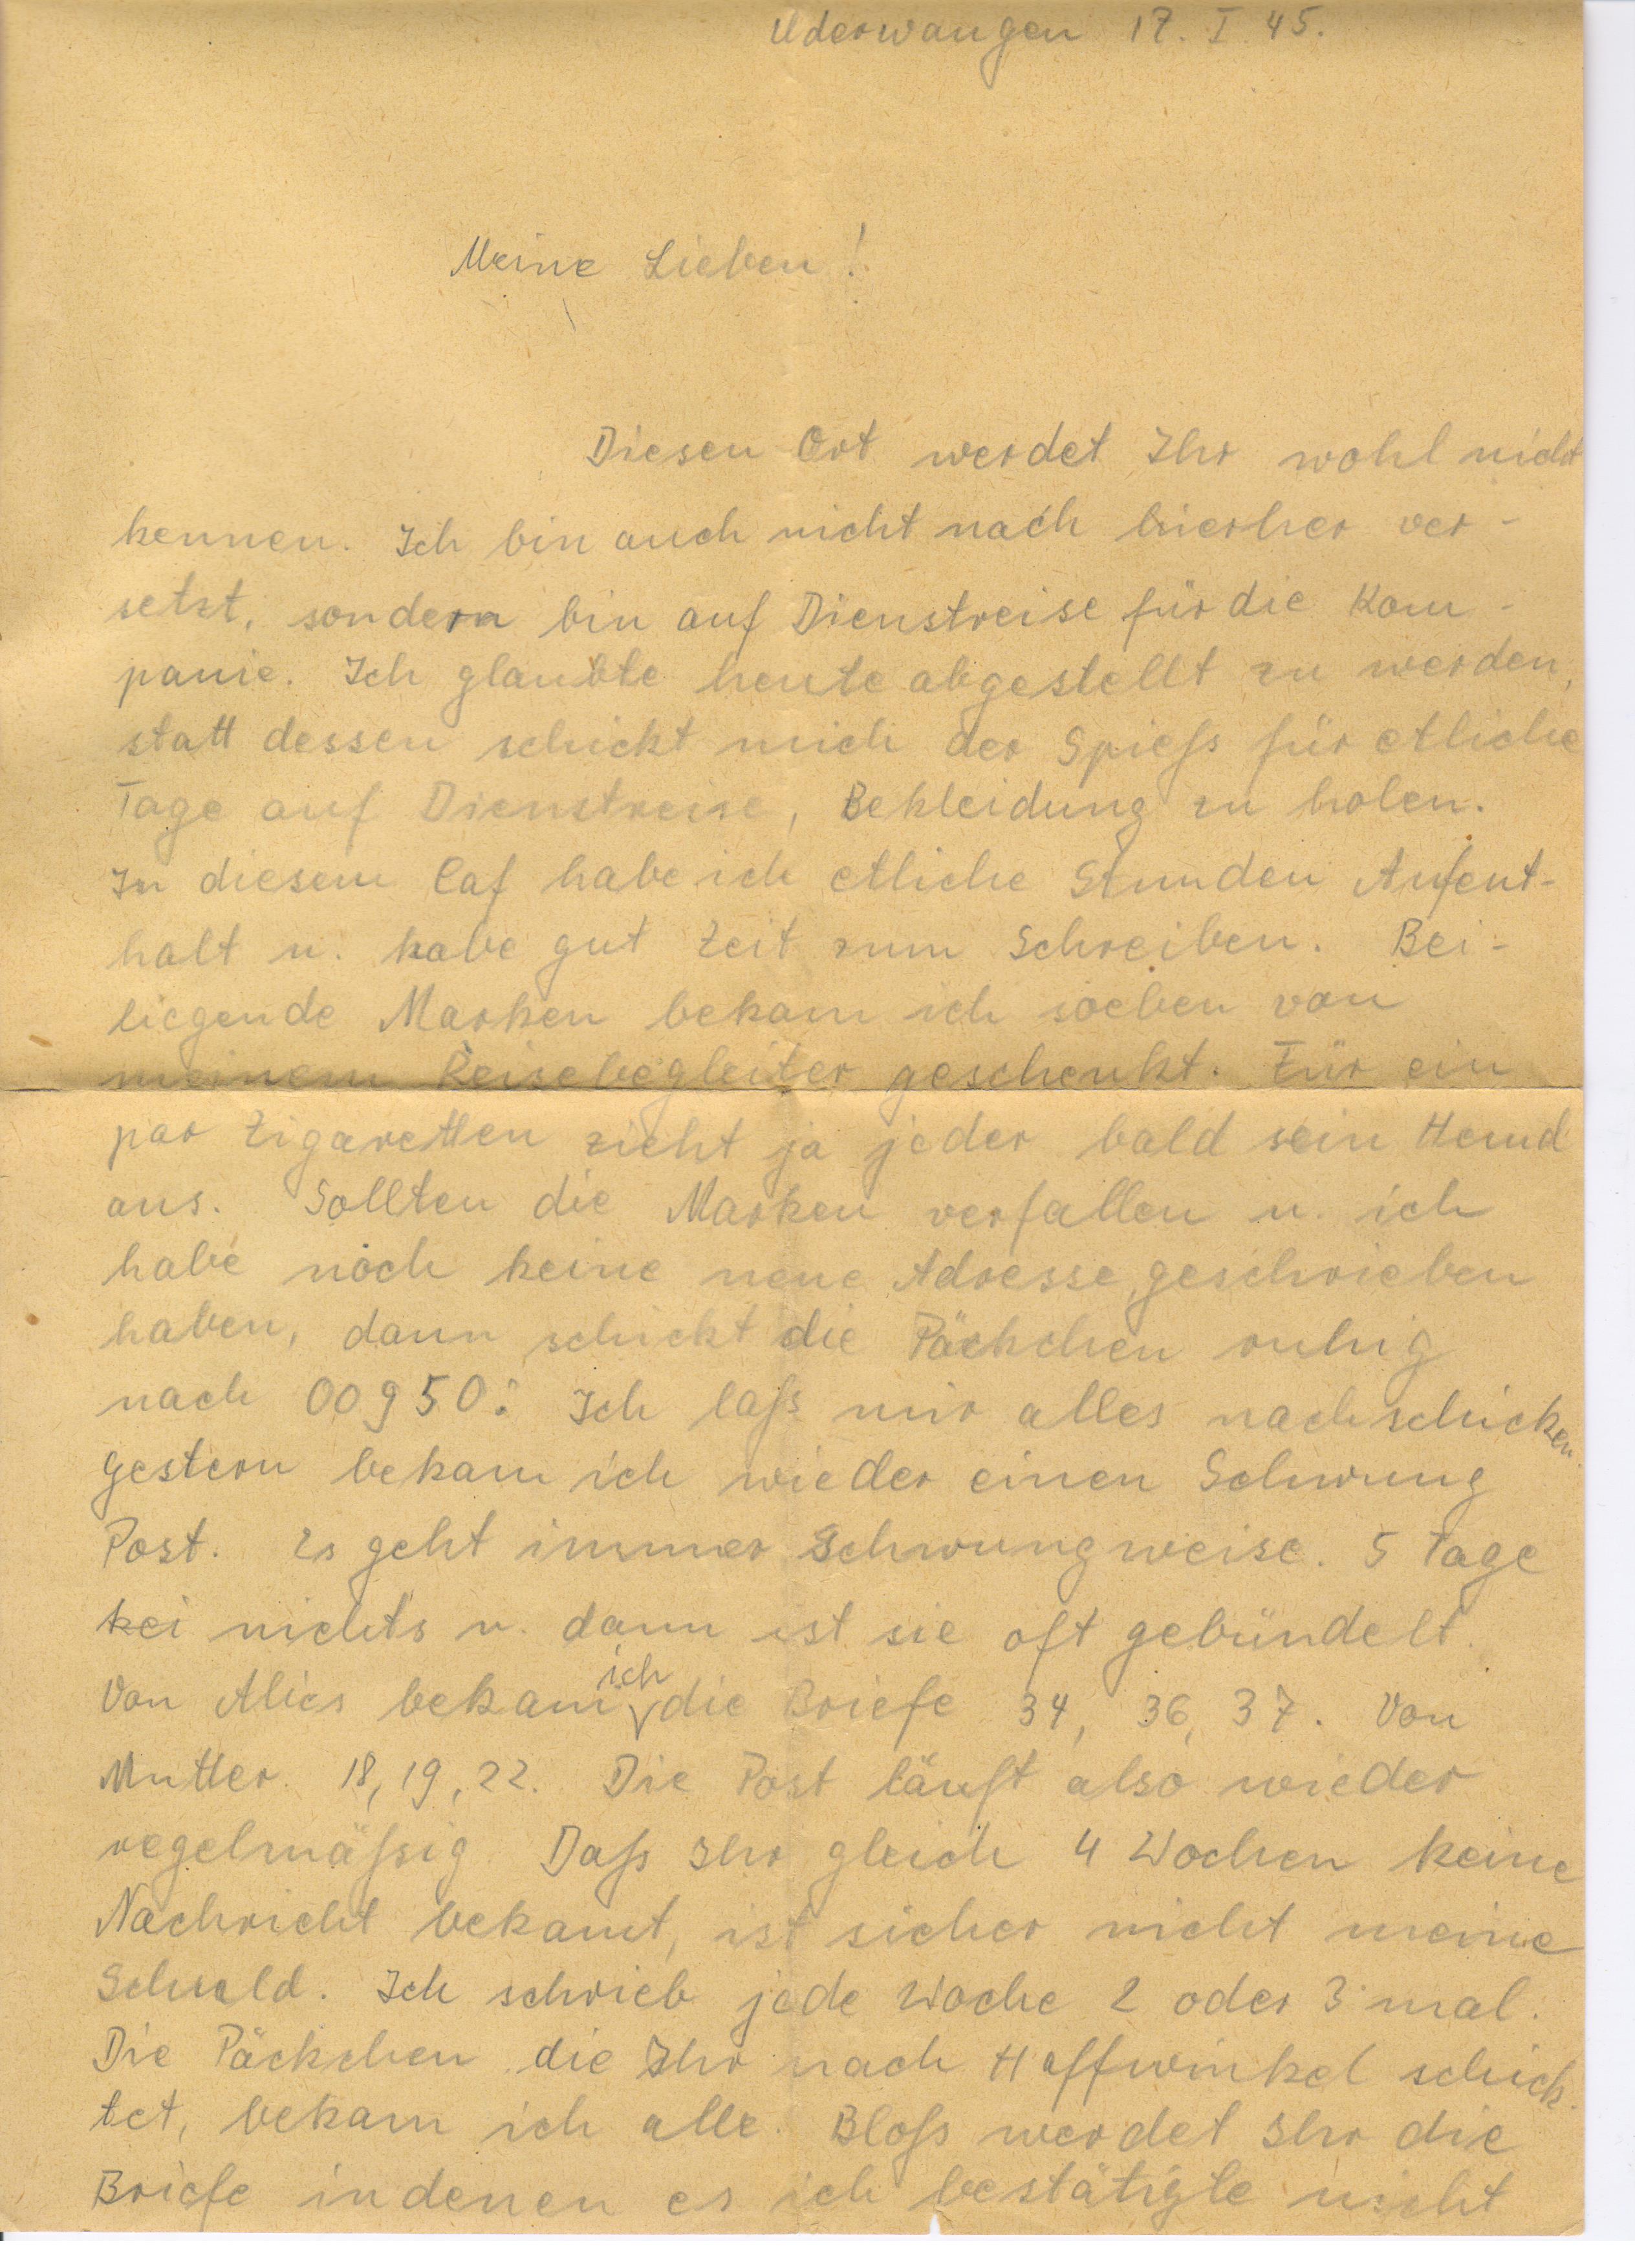 Uderwangen 17. I. 45.
Meine Lieben!
Diesen Ort werdet Ihr wohl nicht
kennen. Ich bin auch nicht nach hierher ver-
setzt, sondern bin auf Dienstreise für die Kom-
panie. Ich glaubte heute abgestellt zu werden,
statt dessen schickt mich der Spieß für etliche
Tage auf Dienstreise, Bekleidung zu holen.
In diesem Caf habe ich etliche Stunden Aufent-
halt u. habe gut Zeit zum Schreiben. Bei-
liegende Marken bekam ich soeben von
meinem Reisebegleiter geschenkt. Für ein
par Zigaretten zieht ja jeder bald sein Hemd
aus. Sollten die Marken verfallen u. ich
habe noch keine neue Adresse geschrieben
haben, dann schickt die Päckchen ruhig
nach 00950. Ich laß mir alles nachschicken.
Gestern bekam ich wieder einen Schwung
Post. Es geht immer Schwungweise. 5 Tage
kei nichts u. dann ist sie oft gebündelt.
Von Alies bekam ich die Briefe 34, 36, 37. Von
Mutter. 18, 19, 22. Die Post läuft also wieder
regelmäßig. Daß Ihr gleich 4 Wochen keine
Nachricht bekamt, ist sicher nicht meine
Schuld. Ich schrieb jede Woche 2 oder 3 mal.
Die Päckchen die Ihr nach Haffwinkel schick-
tet, bekam ich alle. Bloß werdet Ihr die
Briefe in denen es ich bestätigte nicht